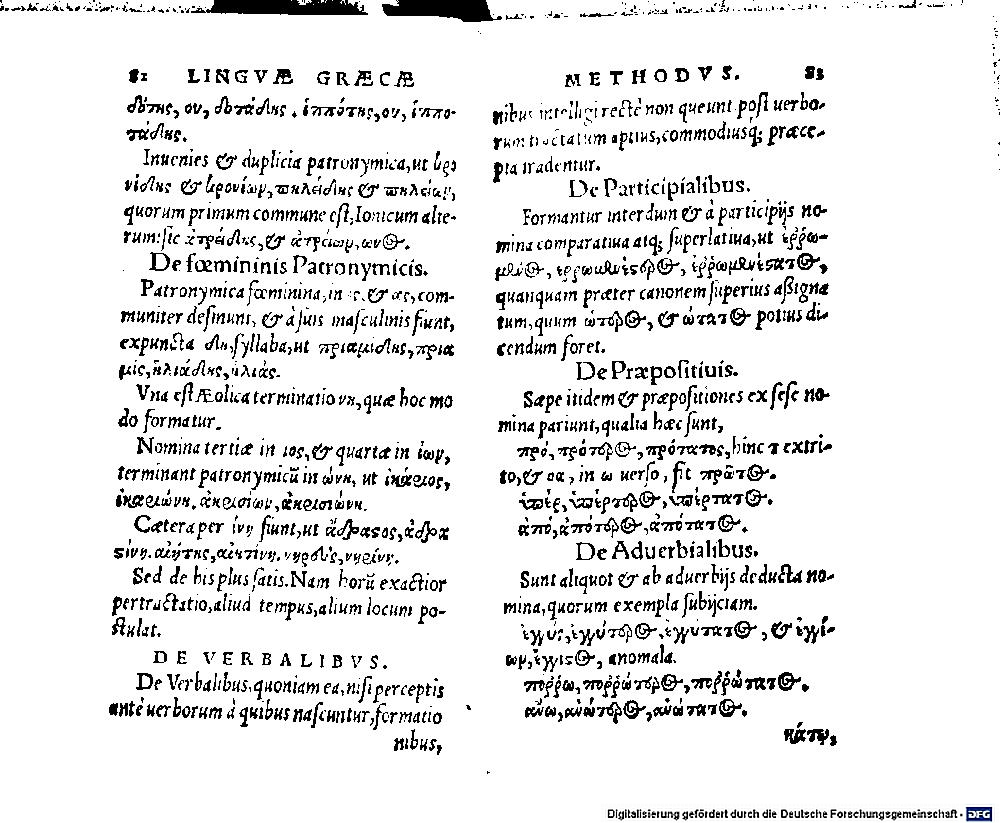 82 LINGVÆ GRÆCÆ
ου, ἱππότης, ου, ἱππο-
τάδης.
Inuenies & duplicia patronymica, ut κρο
νίδης & κρονίων, πηλείδης & πηλείων,
quorum primum commune est, Ionicum alte-
rum: sic ἀτρείδης, & ἀτρείων, ωνος.
De fœmininis Patronymicis.
Patronymica fœminina, in ις, & ας, com-
muniter desinunt, & à suis masculinis fiunt,
expuncta δη, syllaba, ut πριαμίδης, πρια
μίς, ἡλιάδης, ἡλιάς.
Vna est Æolica terminatio νη, quæ hoc mo
do formatur.
Nomina tertiæ in ιος, & quartæ in ίων,
terminant patronymicũ in ώνη, ut ἰκάριος,
ἰκαριώνη. ἀκρισίων, ἀκρισιώνη.
Cætera per ίνη fiunt, ut ἄδραστος, ἀδρα
στίνη. αἰήτης, αἰητίνη. νηρεὺς, νηρίνη.
Sed de his plus satis. Nam horũ exactior
pertractatio, aliud tempus, alium locum po-
stulat.
DE VERBALIBVS.
De Verbalibus, quoniam ea, nisi perceptis
antè uerborum à quibus nascuntur, formatio
nibus,
METHODVS. 83
nibus intelligi rectè non queunt post uerbo-
rum tractatum aptius, commodiusq; præce-
pta tradentur.
De Participialibus.
Formantur interdum & à participijs no-
mina comparatiua atq; superlatiua, ut ἐῤῥω-
μένος, ἐῤῥωμενέστερος, ἐῤῥωμενέστατος,
quanquam præter canonem superius assigna
tum, quum ώτερος, & ώτατος potius di-
cendum foret.
De Præpositiuis.
Sæpe itidem & præpositiones ex sese no-
mina pariunt, qualia hæc sunt,
πρό, πρότερος, πρότατος, hinc τ extri-
to, & οα, in ω uerso, fit πρῶτος.
ὑπέρ, ὑπέρτερος, ὑπέρτατος.
ἀπό, ἀπότερος, ἀπότατος.
De Aduerbialibus.
Sunt aliquot & ab aduerbijs deducta no-
mina, quorum exempla subijciam.
ἐγγύς, ἐγγύτερος, ἐγγύτατος, & ἐγγί-
ων, ἔγγιστος, anomala.
πόῤῥω, ποῤῥώτερος, ποῤῥώτατος.
ἄνω, ἀνώτερος, ἀνώτατος.
κάτω,
Digitalisierung gefördert durch die Deutsche Forschungsgemeinschaft - DFG